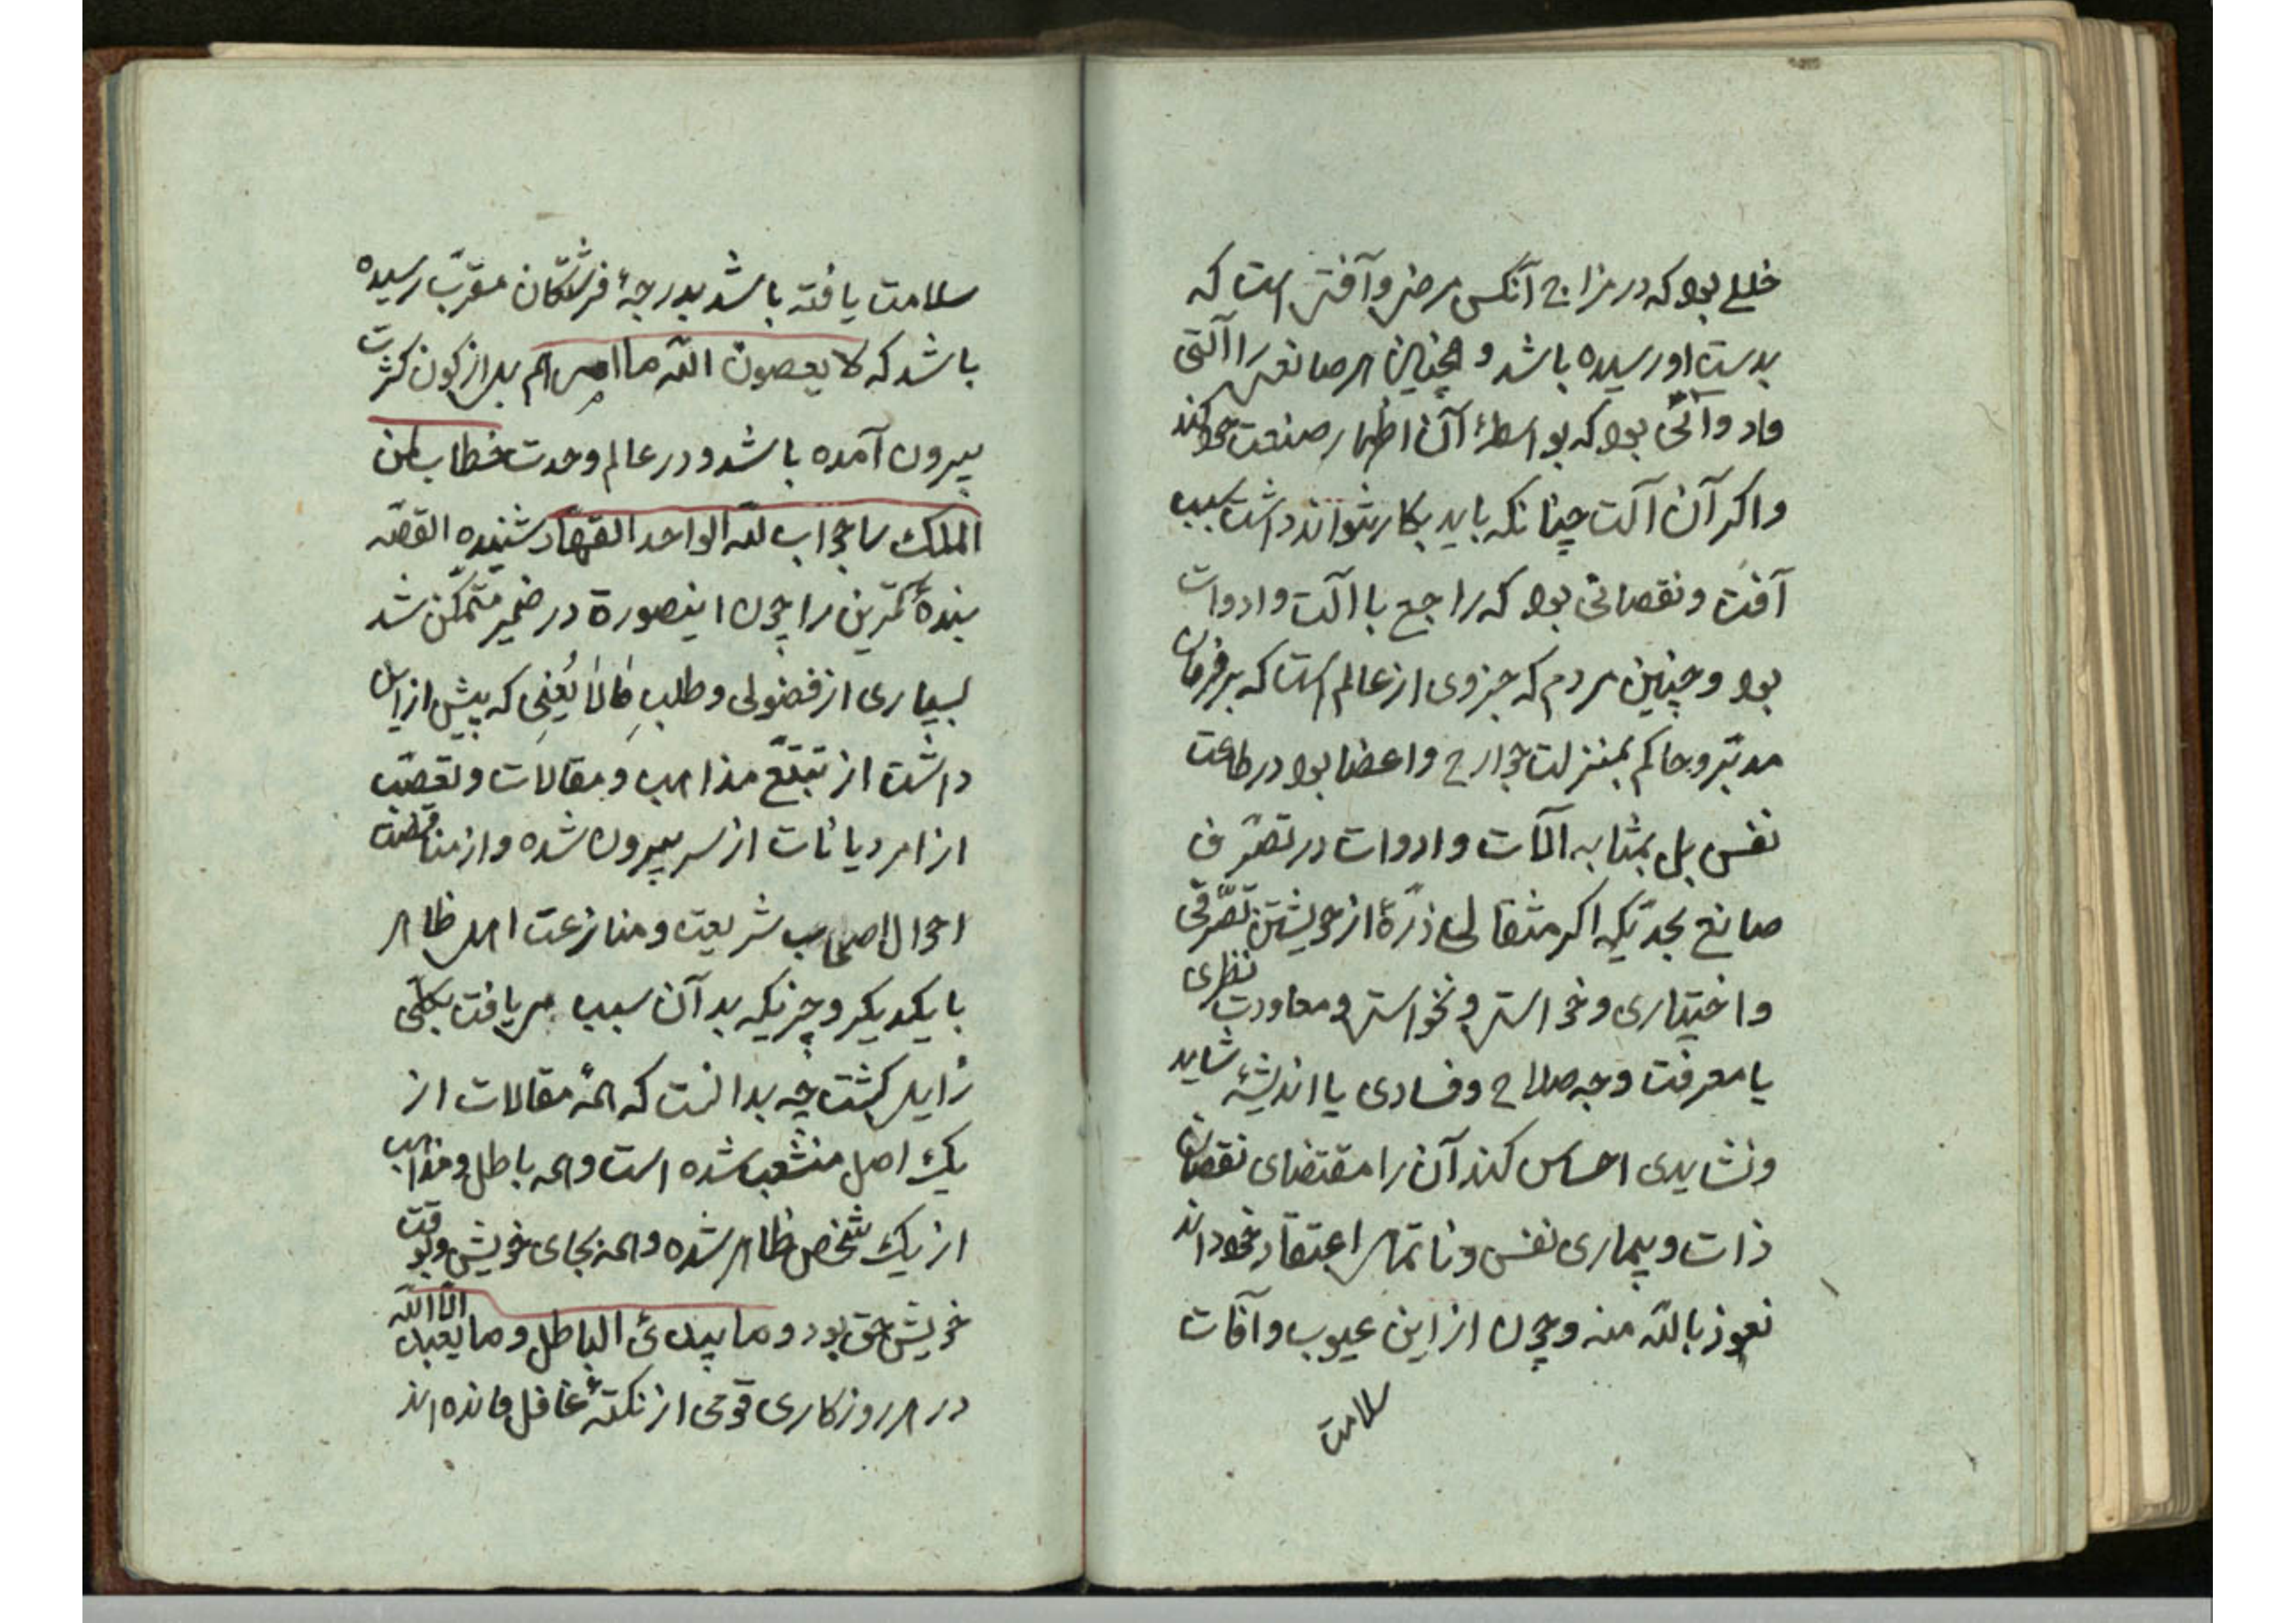 خللی بود که در مزاج آنکس مرضی و آفتی است که
بدست او رسیده باشد و همچنین هر صانعی را آلتی
و ادواتی بود که بواسطهٔ آن اظهار صنعت خود کند
و اگر آن آلت چنانکه باید بکار نتواند داشت سبب
آفت و نقصانی بود که راجع با آلت و ادوات
بود و چنین مردم که جزوی از عالم است که بر فرمان
مدبّر و حاکم بمنزلت جوارح و اعضا بود در طاعت
نفس بل بمثابه آلات و ادوات در تصرّف
صانع بحدّیکه اگر مثقالی ذرّهٔ از خویشتن تصرّفی
و اختیاری و خواستی و نخواستی و معاودت نظری
یا معرفت وجه صلاح و فسادی یا اندیشهٔ شاید
و نشایدی احساس کند آن را مقتضای نقصان
ذات و بیماری نفس و ناتمامی اعتقاد خود داند
نعوذ بالله منه و چون از این عیوب و آفات
سلامت
سلامت یافته باشد بدرجهٔ فرشتگان مقرّب رسیده
باشد که لا یعصون الله ما امرهم بل از کون کثرت
بیرون آمده باشد و در عالم وحدت خطاب لمن
الملک را جواب لله الواحد القهّار شنیده القصّه
بندهٔ کمترین را چون اینصورة در ضمیر متمکّن شد
بسیاری از فضولی و طلبِ مٰا لٰا یُغنِی که پیش از این
داشت از تتبّع مذاهب و مقالات و تعصّب
از امر دیانات از سر بیرون شده و از مناقضت
احوال اصحاب شریعت و منازعت اهل ظاهر
با یکدیکر و چیزیکه بد آن سبب می یافت بکلّی
زایل کشت چه بدانست که همهٔ مقالات از
یک اصل منشعب شده است و همه باطل و مذاهب
از یک شخص ظاهر شده و همه بجای خویش و بوقت
خویش حق بود و ما یبدئ الباطل و ما یعبد الّا الله
در هر روزکاری قومی از نکتهٔ غافل مانده اند